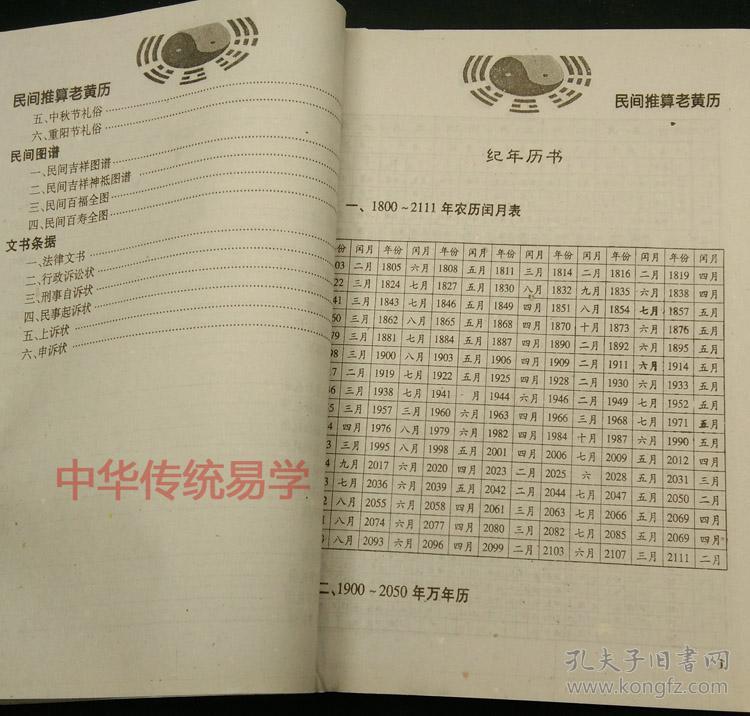 民间推算老黄历
五、中秋节礼俗
六、重阳节礼俗
民间图谱
一、民间吉祥图谱
二、民间吉祥神祗图谱
三、民间百福全图
四、民间百寿全图
文书条据
一、法律文书
二、行政诉讼状
三、刑事自诉状
四、民事起诉状
五、上诉状
六、申诉状
中华传统易学
民间推算老黄历
纪年历书
一、1800~2111年农历闰月表
份 闰月 年份 闰月 年份 闰月 年份 闰月 年份 闰月 年份 闰月 年份 闰月
03 二月 1805 六月 1808 五月 1811 三月 1814 二月 1816 二月 1819 四月
22 三月 1824 七月 1827 五月 1830 八月 1832 九月 1835 六月 1838 四月
41 三月 1843 七月 1846 五月 1849 四月 1851 八月 1854 七月 1857 五月
60 三月 1862 八月 1865 五月 1868 四月 1870 十月 1873 六月 1876 五月
79 三月 1881 七月 1884 五月 1887 四月 1890 二月 1892 六月 1895 五月
98 三月 1900 八月 1903 五月 1906 四月 1909 二月 1911 六月 1914 五月
7 二月 1919 七月 1922 五月 1925 四月 1928 二月 1930 六月 1933 五月
6 三月 1938 七月 1941 月 1944 四月 1946 二月 1949 七月 1952 五月
5 三月 1957 八月 1960 六月 1963 四月 1966 三月 1968 七月 1971 五月
4 四月 1976 八月 1979 六月 1982 四月 1984 十月 1987 六月 1990 五月
3 三月 1995 八月 1998 五月 2001 四月 2006 七月 2009 五月 2012 四月
4 九月 2017 六月 2020 四月 2023 二月 2025 六 2028 五月 2031 三月
3 七月 2036 六月 2039 五月 2042 二月 2044 七月 2047 五月 2050 二月
2 八月 2055 六月 2058 四月 2061 三月 2063 七月 2066 五月 2069 四月
八月 2074 六月 2077 四月 2080 三月 2082 七月 2085 五月 2069 四月
八月 2093 六月 2096 四月 2099 二月 2103 六月 2107 三月 2111 二月
二、1900~2050年万年历
1
孔夫子旧书网
www.kongfz.com